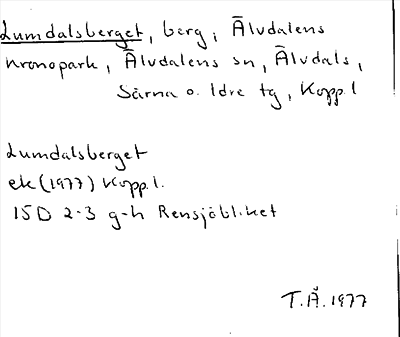 Lumdalsberget, berg i Älvdalens
kronopark, Älvdalens sn, Älvdals,
Särna o. Idre tg, Kopp.l
Lumdalsberget
ek (1977) Kopp.l.
15D 2-3 g-h Rensjöblicket
T.Å. 1977